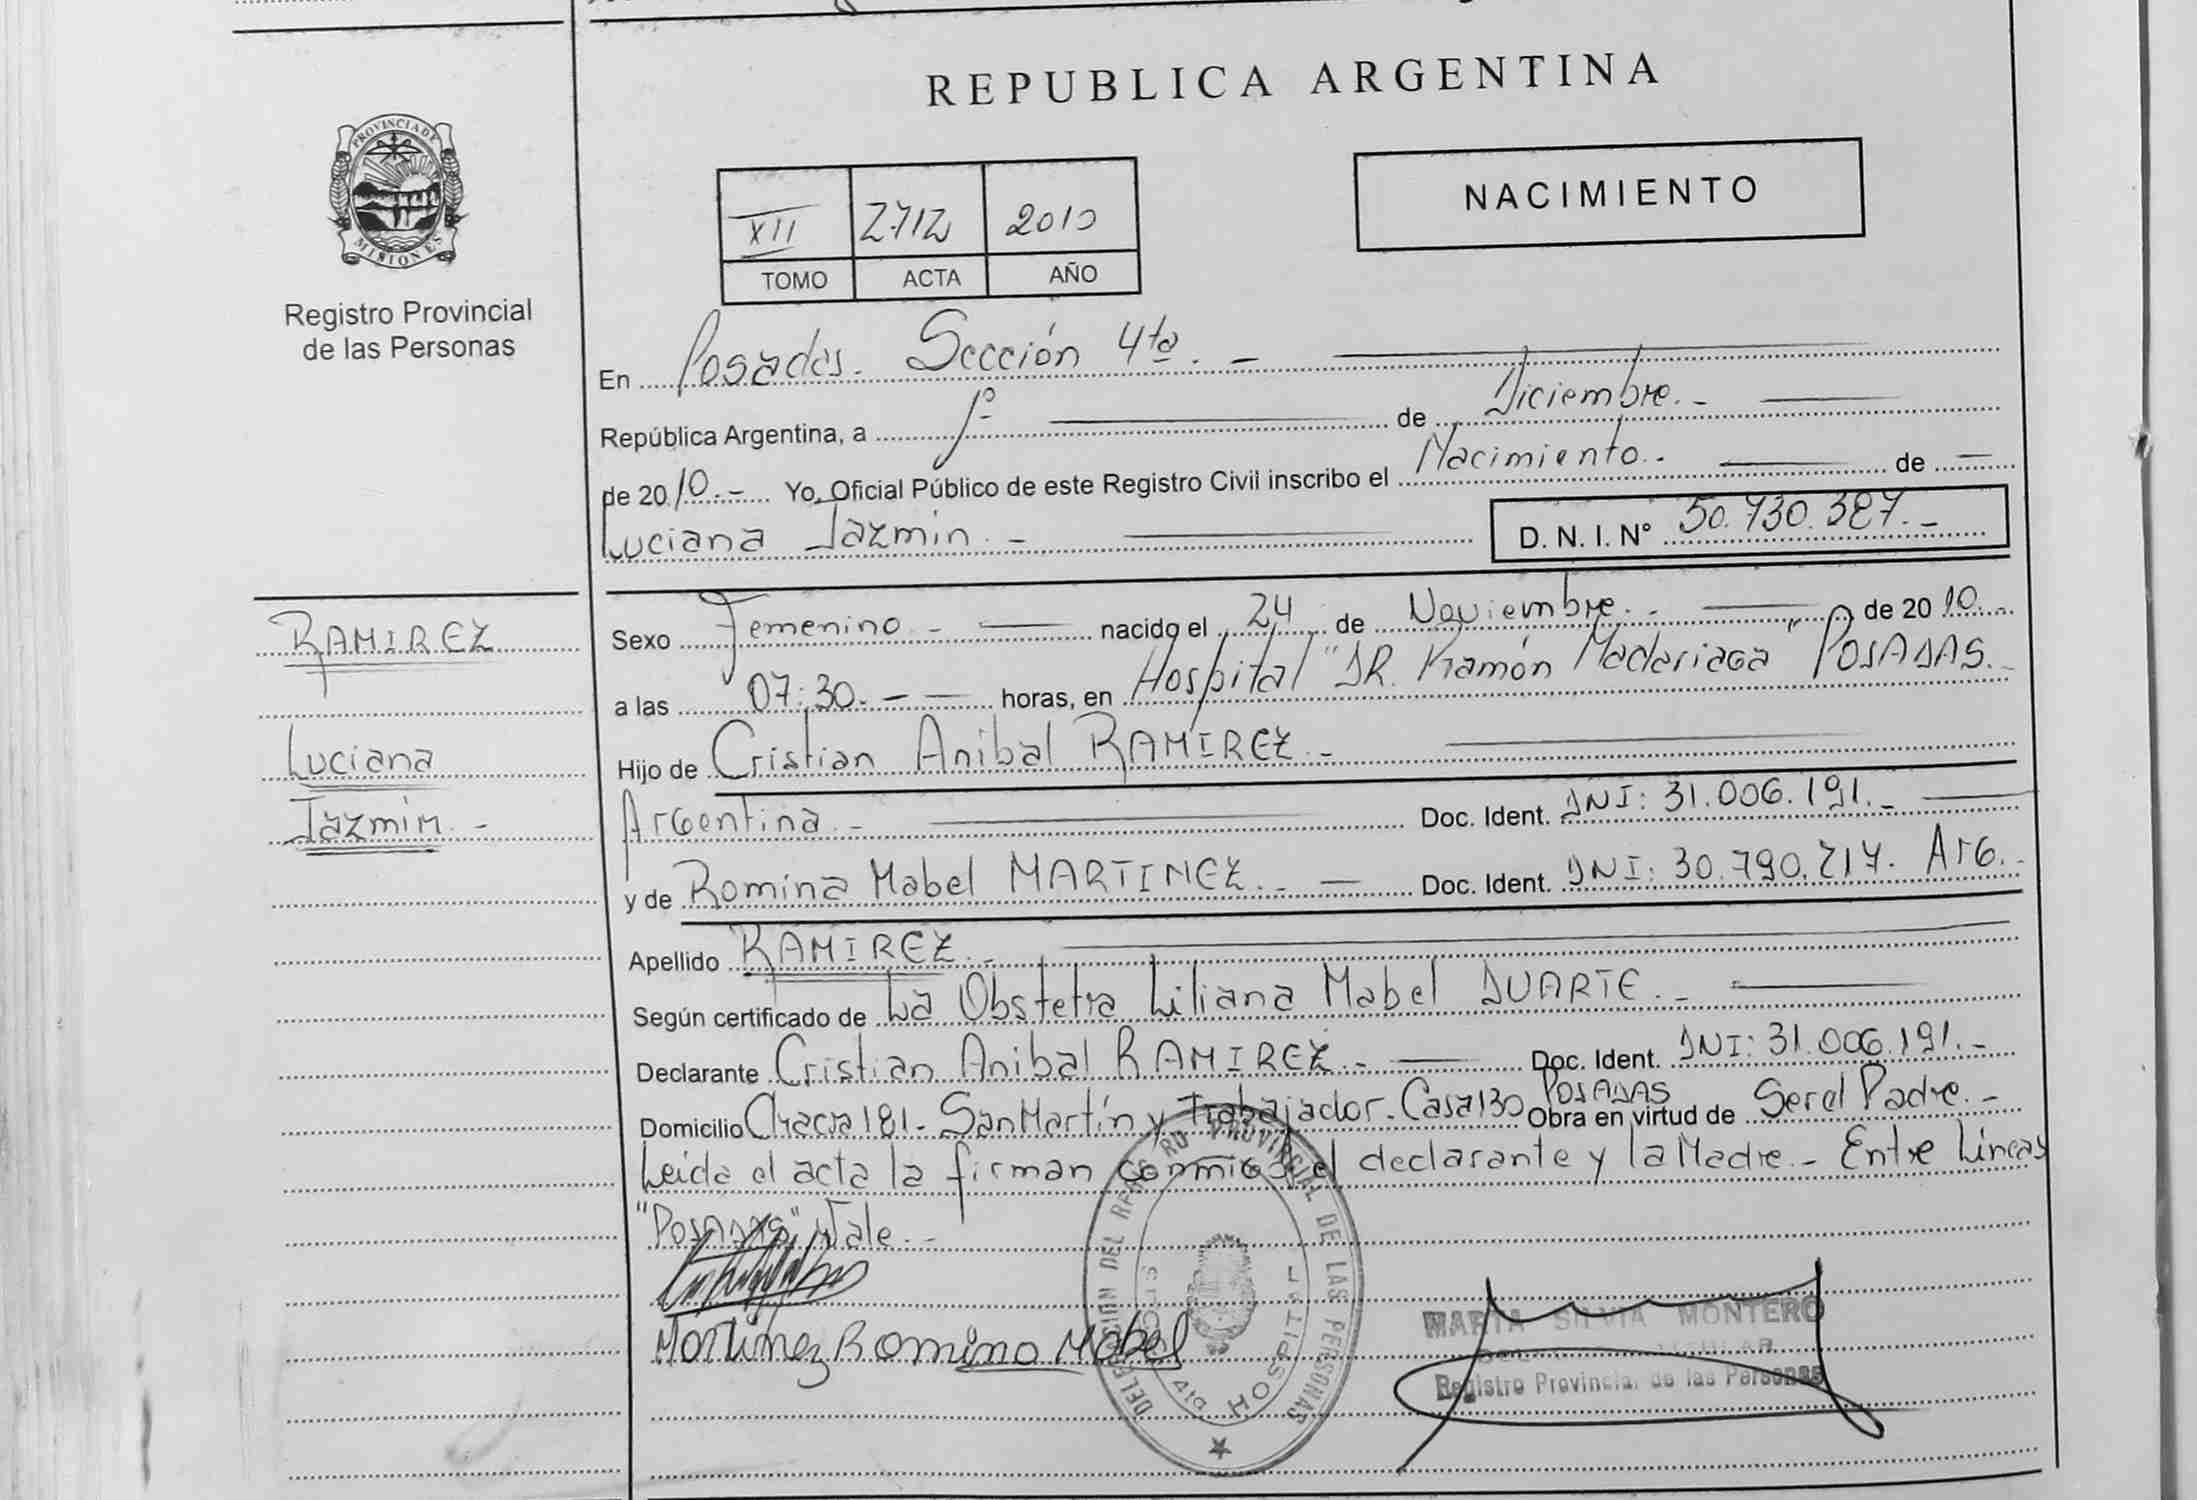 REPUBLICA ARGENTINA
PROVINCIA DE
MISIONES
Registro Provincial
de las Personas
NACIMIENTO
XII 2712 2010
TOMO ACTA AÑO
En Posadas. Sección 4ta. -
República Argentina, a 1º de Diciembre. -
de 2010. - Yo, Oficial Público de este Registro Civil inscribo el Nacimiento. - de
Luciana Jazmin. - D. N. I. Nº 50.730.387. -
RAMIREZ
Luciana
Jazmin. -
Sexo Femenino. - nacido el 24 de Noviembre. - de 2010. -
a las 07:30. - - horas, en Hospital "DR. Ramón Madariaga" POSADAS. -
Hijo de Cristian Anibal RAMIREZ. -
Argentina. - Doc. Ident. DNI: 31.006.191. -
y de Romina Mabel MARTINEZ. - Doc. Ident. DNI: 30.790.217. Arg. -
Apellido RAMIREZ. -
Según certificado de La Obstetra Liliana Mabel DUARTE. -
Declarante Cristian Anibal RAMIREZ. - Doc. Ident. DNI: 31.006.191. -
POSADAS
Domicilio Chacra 181 - San Martín y Trabajador - Casa 130 Obra en virtud de Ser el Padre. -
Leida el acta la firman conmigo el declarante y la Madre. - Entre Lineas
"POSADAS" Vale. -
Martinez Romina Mabel
DELEGACION DEL REGISTRO PROVINCIAL DE LAS PERSONAS
HOSPITAL
MARTA SILVIA MONTERO
Registro Provincial de las Personas